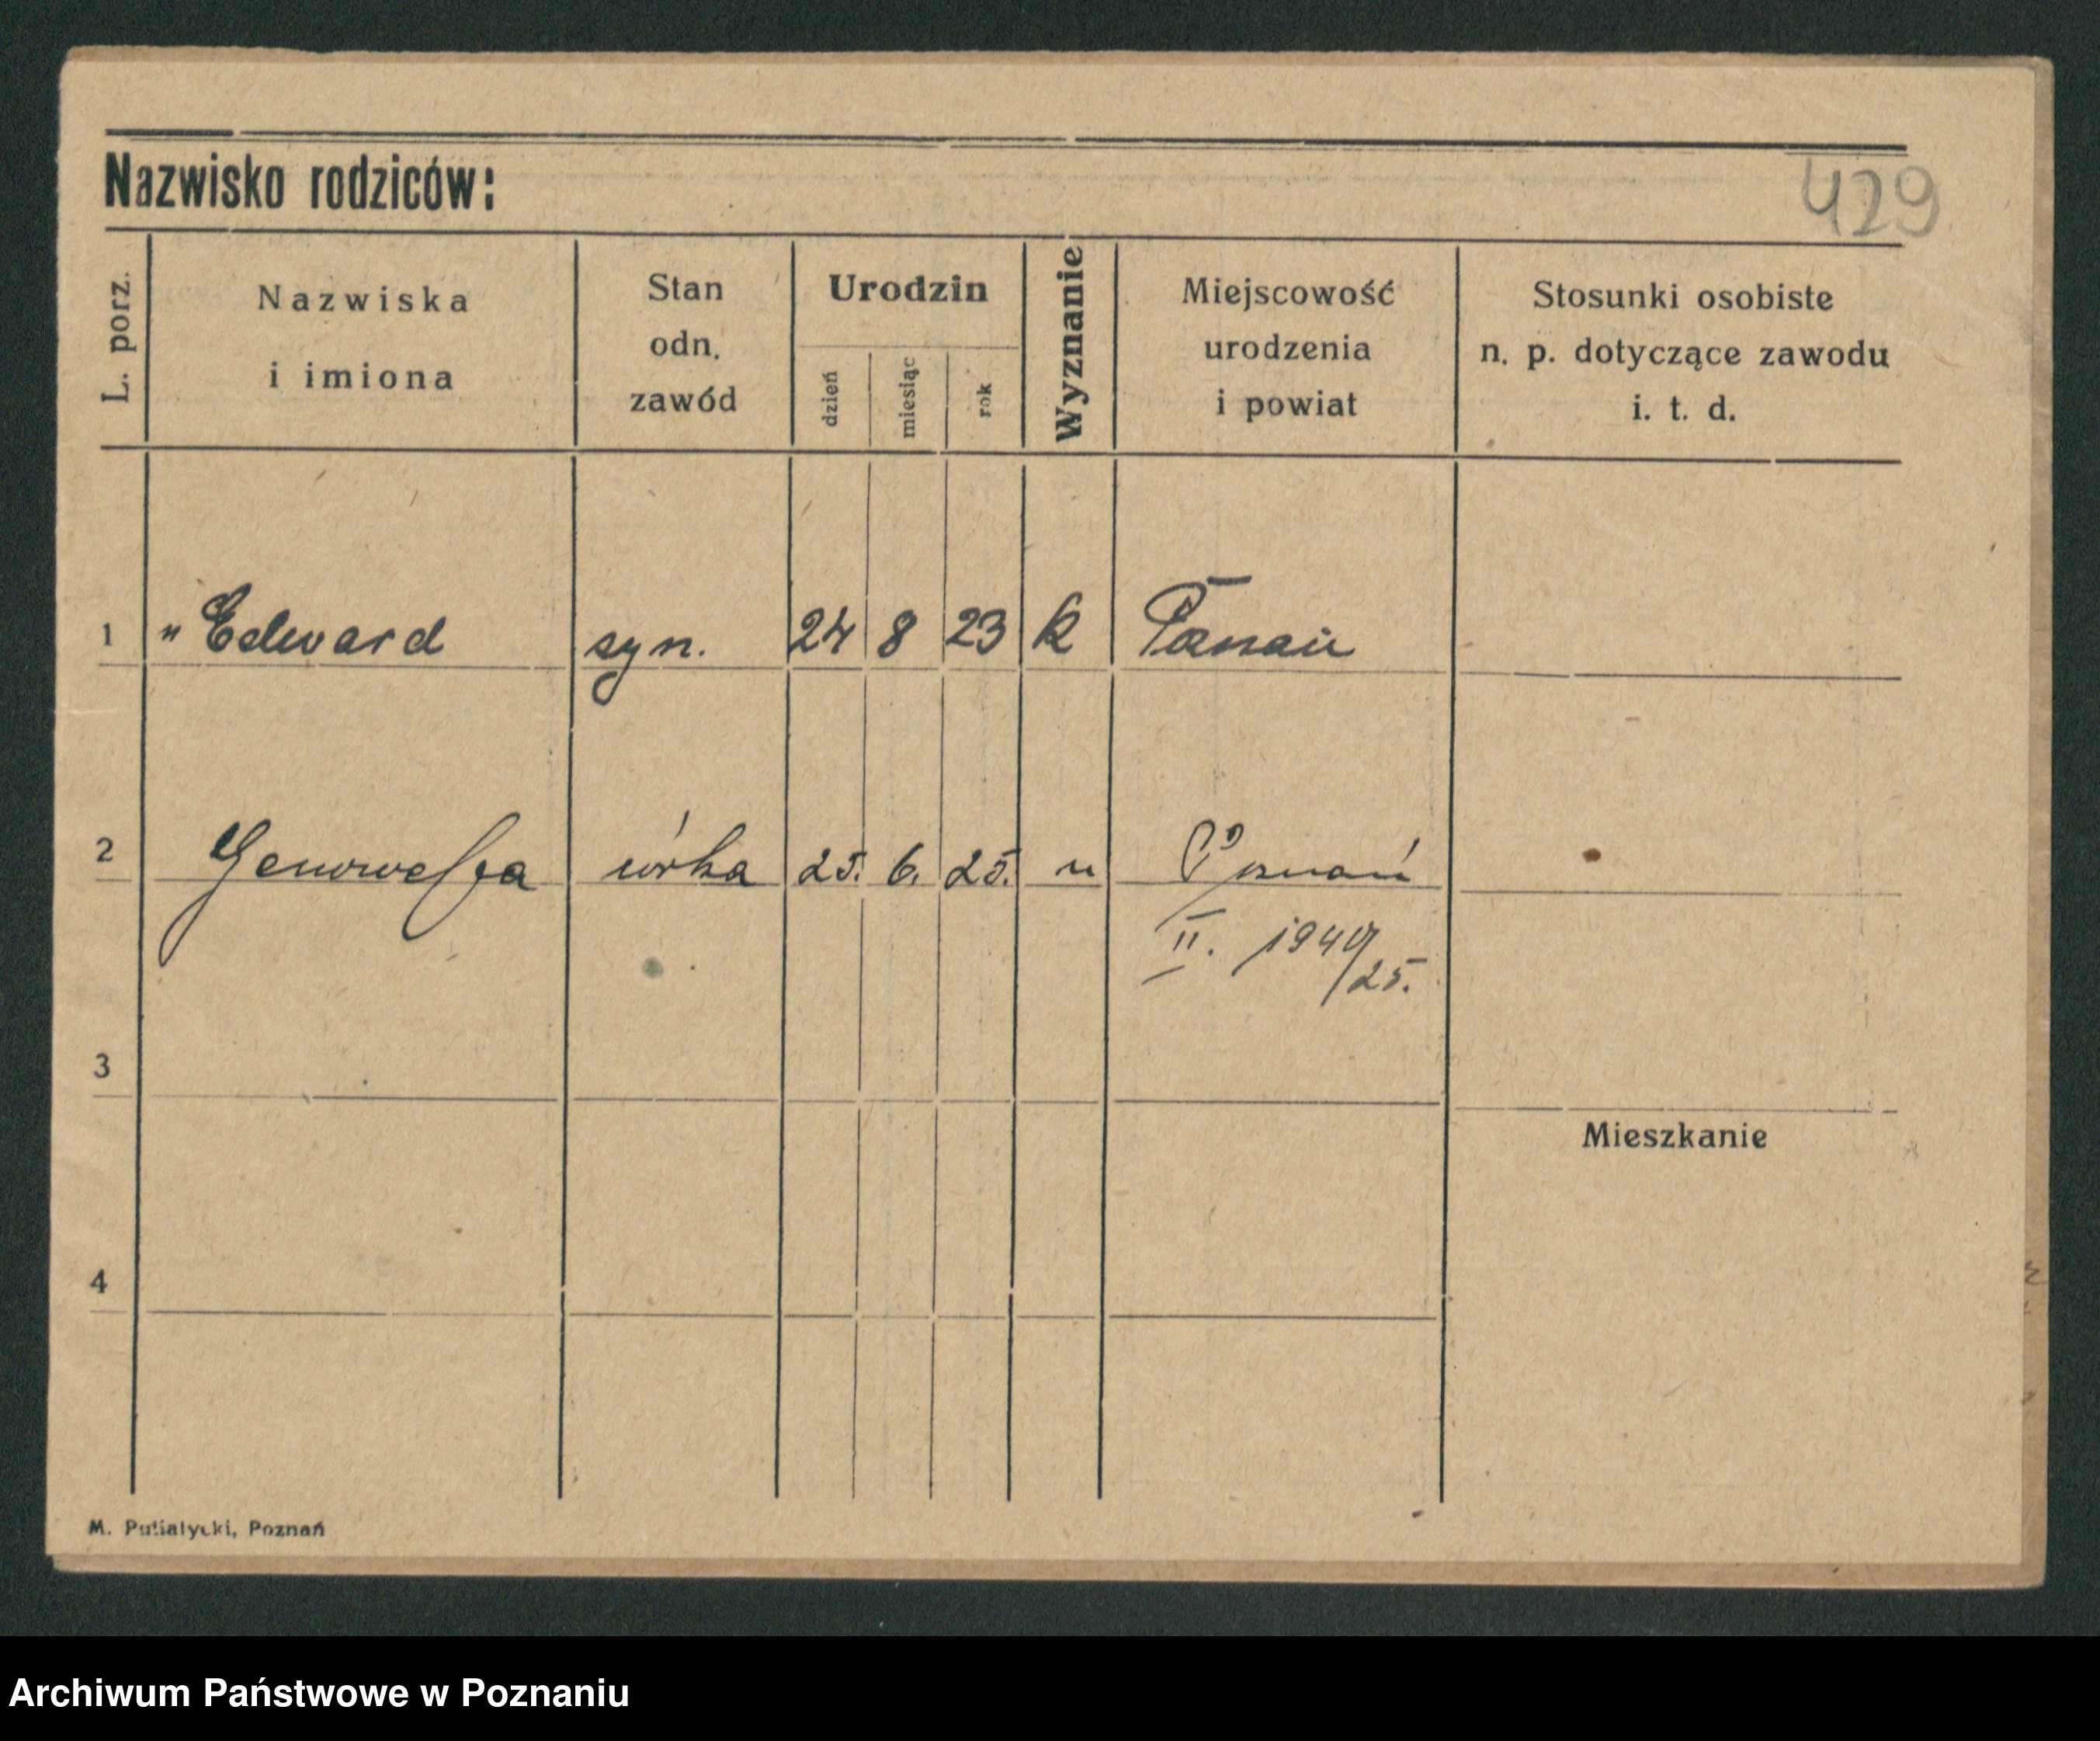 Nazwisko rodziców:
429
L. porz.
Nazwiska
i imiona
Stan
odn.
zawód
Urodzin
dzień
miesiąc
rok
Wyznanie
Miejscowość
urodzenia
i powiat
Stosunki osobiste
n. p. dotyczące zawodu
i. t. d.
1 " Edward syn. 24 8 23 k Poznań
2 Genowefa córka 25. 6. 25. " Poznań
II. 1940/25.
3
Mieszkanie
4
M. Putiatycki, Poznań
Archiwum Państwowe w Poznaniu